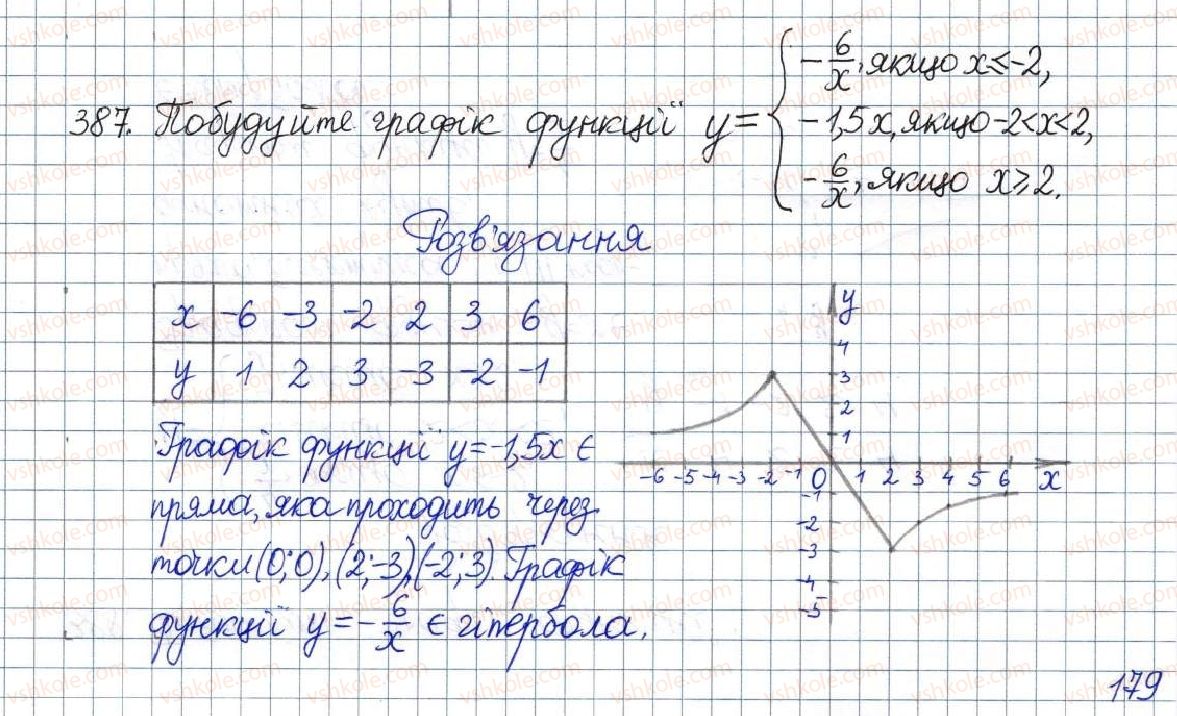 387. Побудуйте графік функції y = { -6/x, якщо x ≤ -2,
-1,5x, якщо -2 < x < 2,
-6/x, якщо x ≥ 2.
Розв'язання
x -6 -3 -2 2 3 6
y 1 2 3 -3 -2 -1
Графік функції y = -1,5x є
пряма, яка проходить через
точки (0;0), (2;-3), (-2;3). Графік
функції y = -6/x є гіпербола.
y
4
3
2
1
-6 -5 -4 -3 -2 -1 0 1 2 3 4 5 6 x
-1
-2
-3
-4
-5
179
vshkole.com